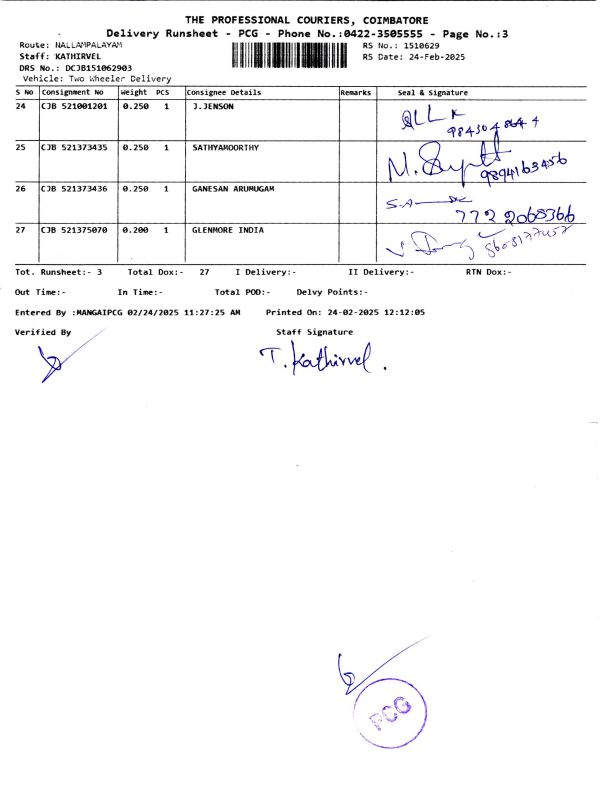 THE PROFESSIONAL COURIERS, COIMBATORE
Delivery Runsheet - PCG - Phone No.:0422-3505555 - Page No.:3
Route: NALLAMPALAYAM RS No.: 1510629
Staff: KATHIRVEL RS Date: 24-Feb-2025
DRS No.: DCJB151062903
Vehicle: Two Wheeler Delivery
S No Consignment No Weight PCS Consignee Details Remarks Seal & Signature
24 CJB 521001201 0.250 1 J.JENSON
25 CJB 521373435 0.250 1 SATHYAMOORTHY
9894163456
26 CJB 521373436 0.250 1 GANESAN ARUMUGAM
772 2068366
27 CJB 521375070 0.200 1 GLENMORE INDIA
Tot. Runsheet:- 3 Total Dox:- 27 I Delivery:- II Delivery:- RTN Dox:-
Out Time:- In Time:- Total POD:- Delvy Points:-
Entered By :MANGAIPCG 02/24/2025 11:27:25 AM Printed On: 24-02-2025 12:12:05
Verified By Staff Signature
T. Kathirvel.
PCG